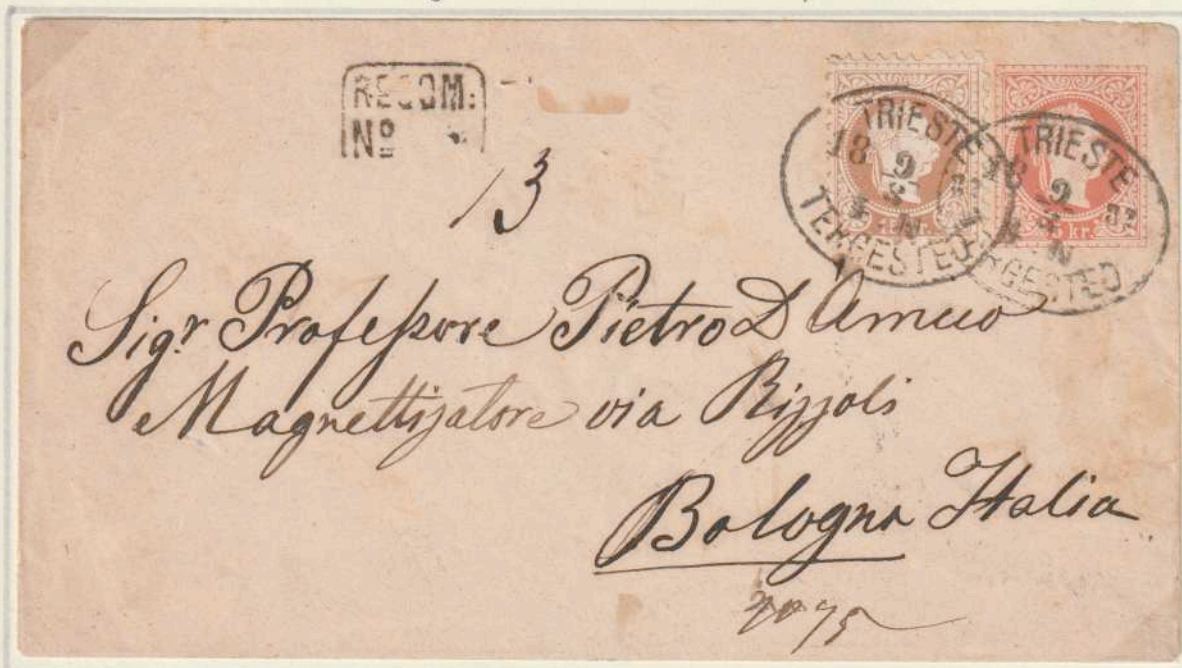 RECOM:
Nº
13
TRIESTE
18 9
N
TERGESTEO
TRIESTE
18 9 82
5 kr.
N
TERGESTEO
Sigr Professore Pietro D Amico
Magnettizatore via Rizzoli
Bologna Italia